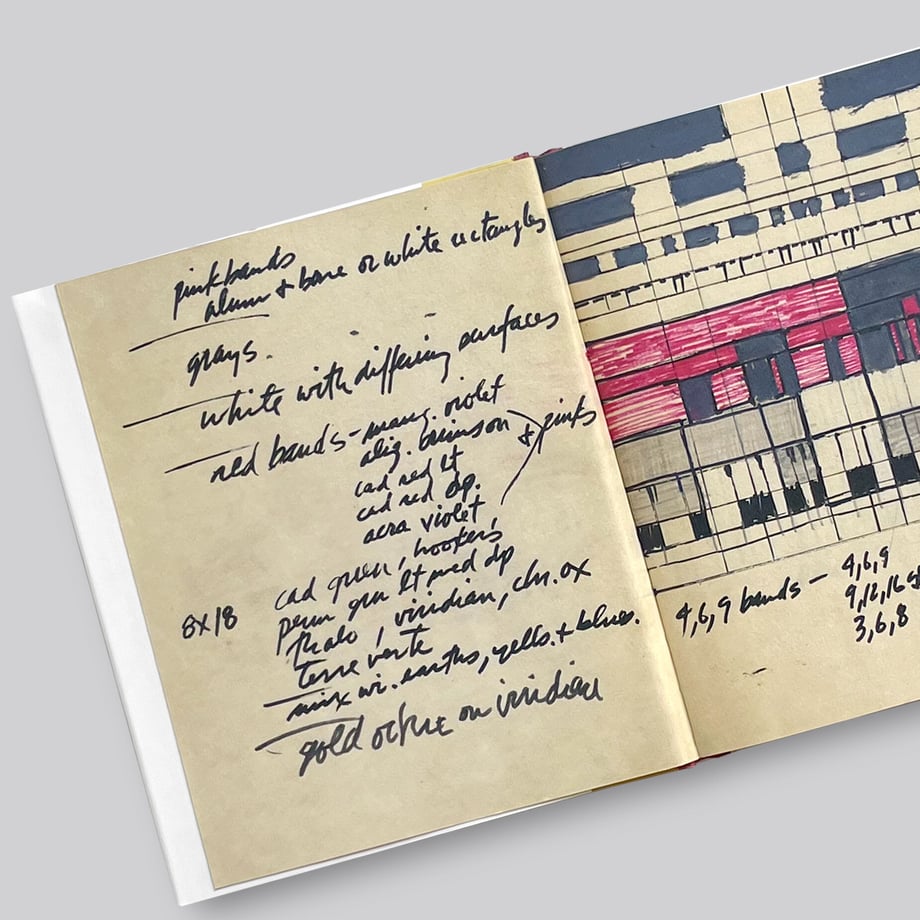 pink bands
alum + bone or white rectangles
grays.
white with differing surfaces
red bands - mang. violet
aliz. crimson + pinks
cad red lt
cad red dp.
acra violet
cad green, hookers,
8x18 perm grn lt med dp
thalo, viridian, chr. ox
terre verte
mix w. earths, yells. + blues.
gold ochre on viridian
4,6,9 bands - 4,6,9
9,12,16
3,6,8